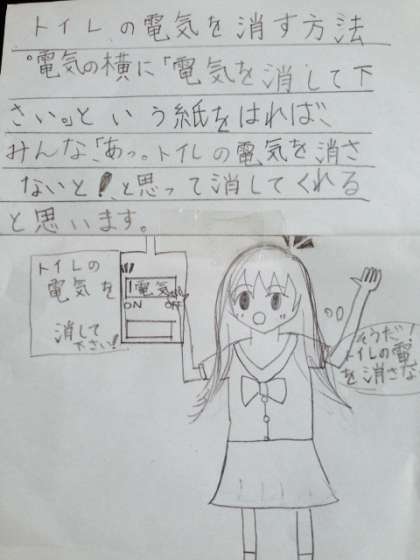 トイレの電気を消す方法
°電気の横に「電気を消して下
さい。」という紙をはれば、
みんな、「あっ。トイレの電気を消さ
ないと！」と思って消してくれる
と思います。
トイレの
電気を
消して
下さい!
電気
ON OFF
そうだ
トイレの電
を消さな